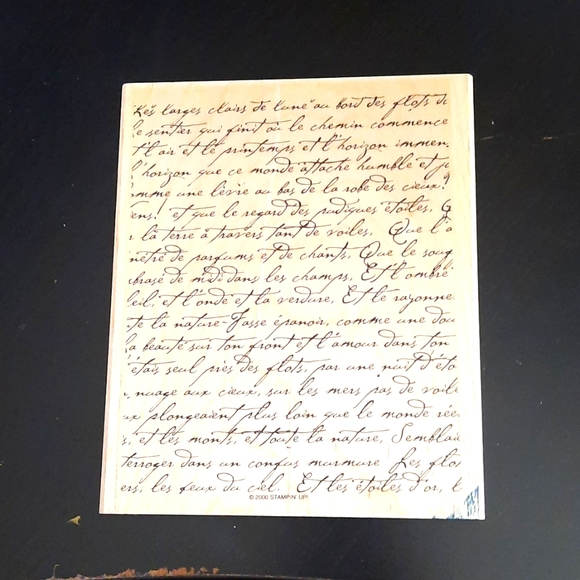 Les larges clairs de lune au bord des flots d
le sentier qui finit où le chemin commence
t l'air et le printemps et l'horizon immen
l'horizon que ce monde attache humble et j
omme une lèvre au bas de la robe des cieux!
ens! et que le regard des pudiques étoiles,
la terre à travers tant de voiles, Que l'a
nétré de parfums et de chants, Que le souf
brasé de midi dans les champs, Et l'ombre
leil, et l'onde et la verdure, Et le rayonne
te la nature Fasse épanoir, comme une dou
la beauté sur ton front et l'amour dans ton
étais seul près des flots, par une nuit d'éto
nuage aux cieux, sur les mers pas de voile
ux plongeaient plus loin que le monde rée
s, et les monts, et toute la nature, Semblaie
terroger dans un confus murmure Les flo
ers, les feux du ciel. Et les étoiles d'or, l
© 2000 STAMPIN' UP!